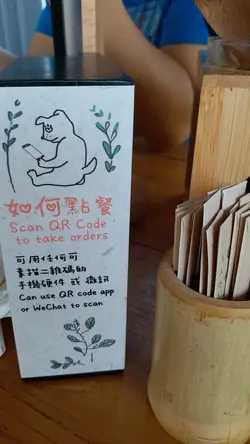 如何點餐
Scan QR Code
to take orders
可用任何可
素描二維碼的
手機硬件 或 微訊
Can use QR code app
or WeChat to scan